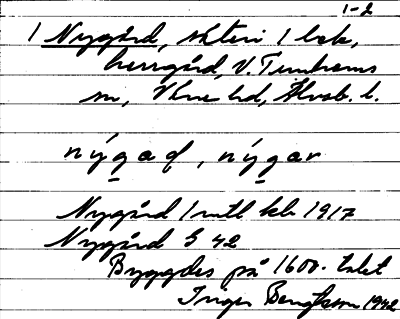 1-2
1 Nygård, skteri 1 bek,
herrgård, V. Tunhems
sn, Väne hd, Älvsb. l.
nýgaḍ, nýgar
Nygård 1 mtl kb 1917
Nygård G 42
Byggdes på 1600-talet
Inger Bengtsson 1942